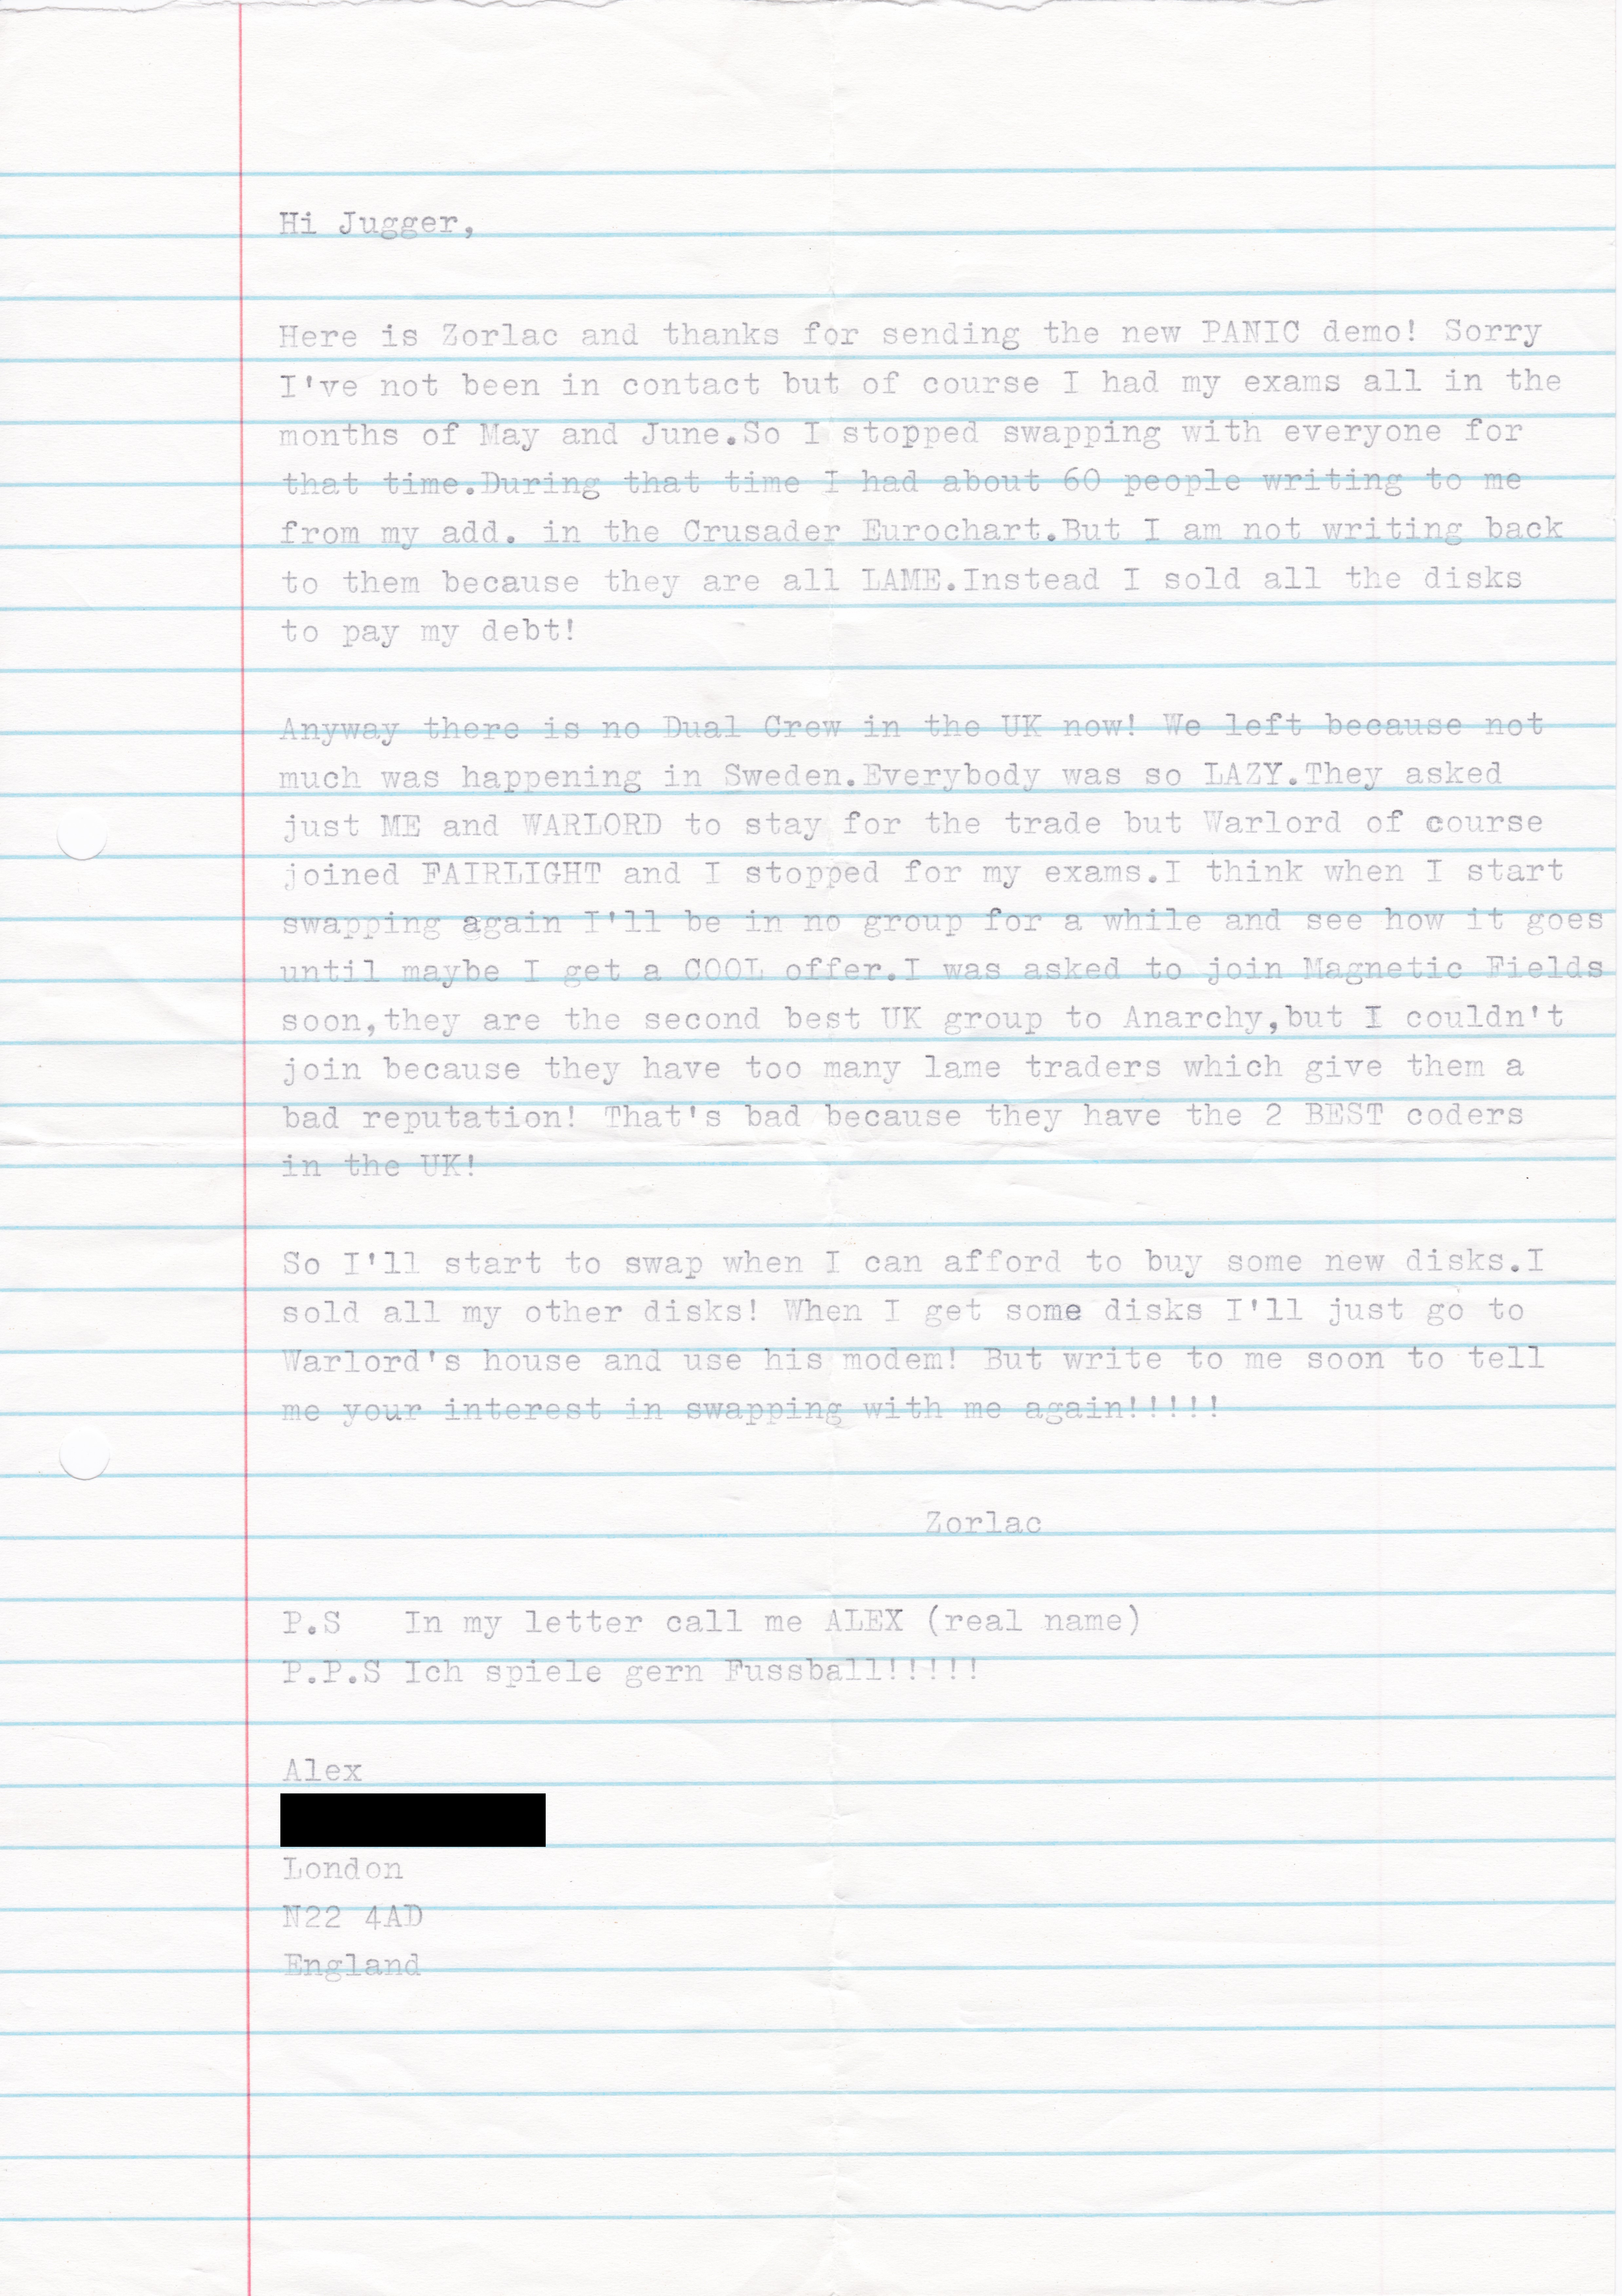 Hi Jugger,
Here is Zorlac and thanks for sending the new PANIC demo! Sorry
I've not been in contact but of course I had my exams all in the
months of May and June.So I stopped swapping with everyone for
that time.During that time I had about 60 people writing to me
from my add. in the Crusader Eurochart.But I am not writing back
to them because they are all LAME.Instead I sold all the disks
to pay my debt!
Anyway there is no Dual Crew in the UK now! We left because not
much was happening in Sweden.Everybody was so LAZY.They asked
just ME and WARLORD to stay for the trade but Warlord of course
joined FAIRLIGHT and I stopped for my exams.I think when I start
swapping again I'll be in no group for a while and see how it goes
until maybe I get a COOL offer.I was asked to join Magnetic Fields
soon,they are the second best UK group to Anarchy,but I couldn't
join because they have too many lame traders which give them a
bad reputation! That's bad because they have the 2 BEST coders
in the UK!
So I'll start to swap when I can afford to buy some new disks.I
sold all my other disks! When I get some disks I'll just go to
Warlord's house and use his modem! But write to me soon to tell
me your interest in swapping with me again!!!!!
Zorlac
P.S   In my letter call me ALEX (real name)
P.P.S Ich spiele gern Fussball!!!!!
Alex
London
N22 4AD
England